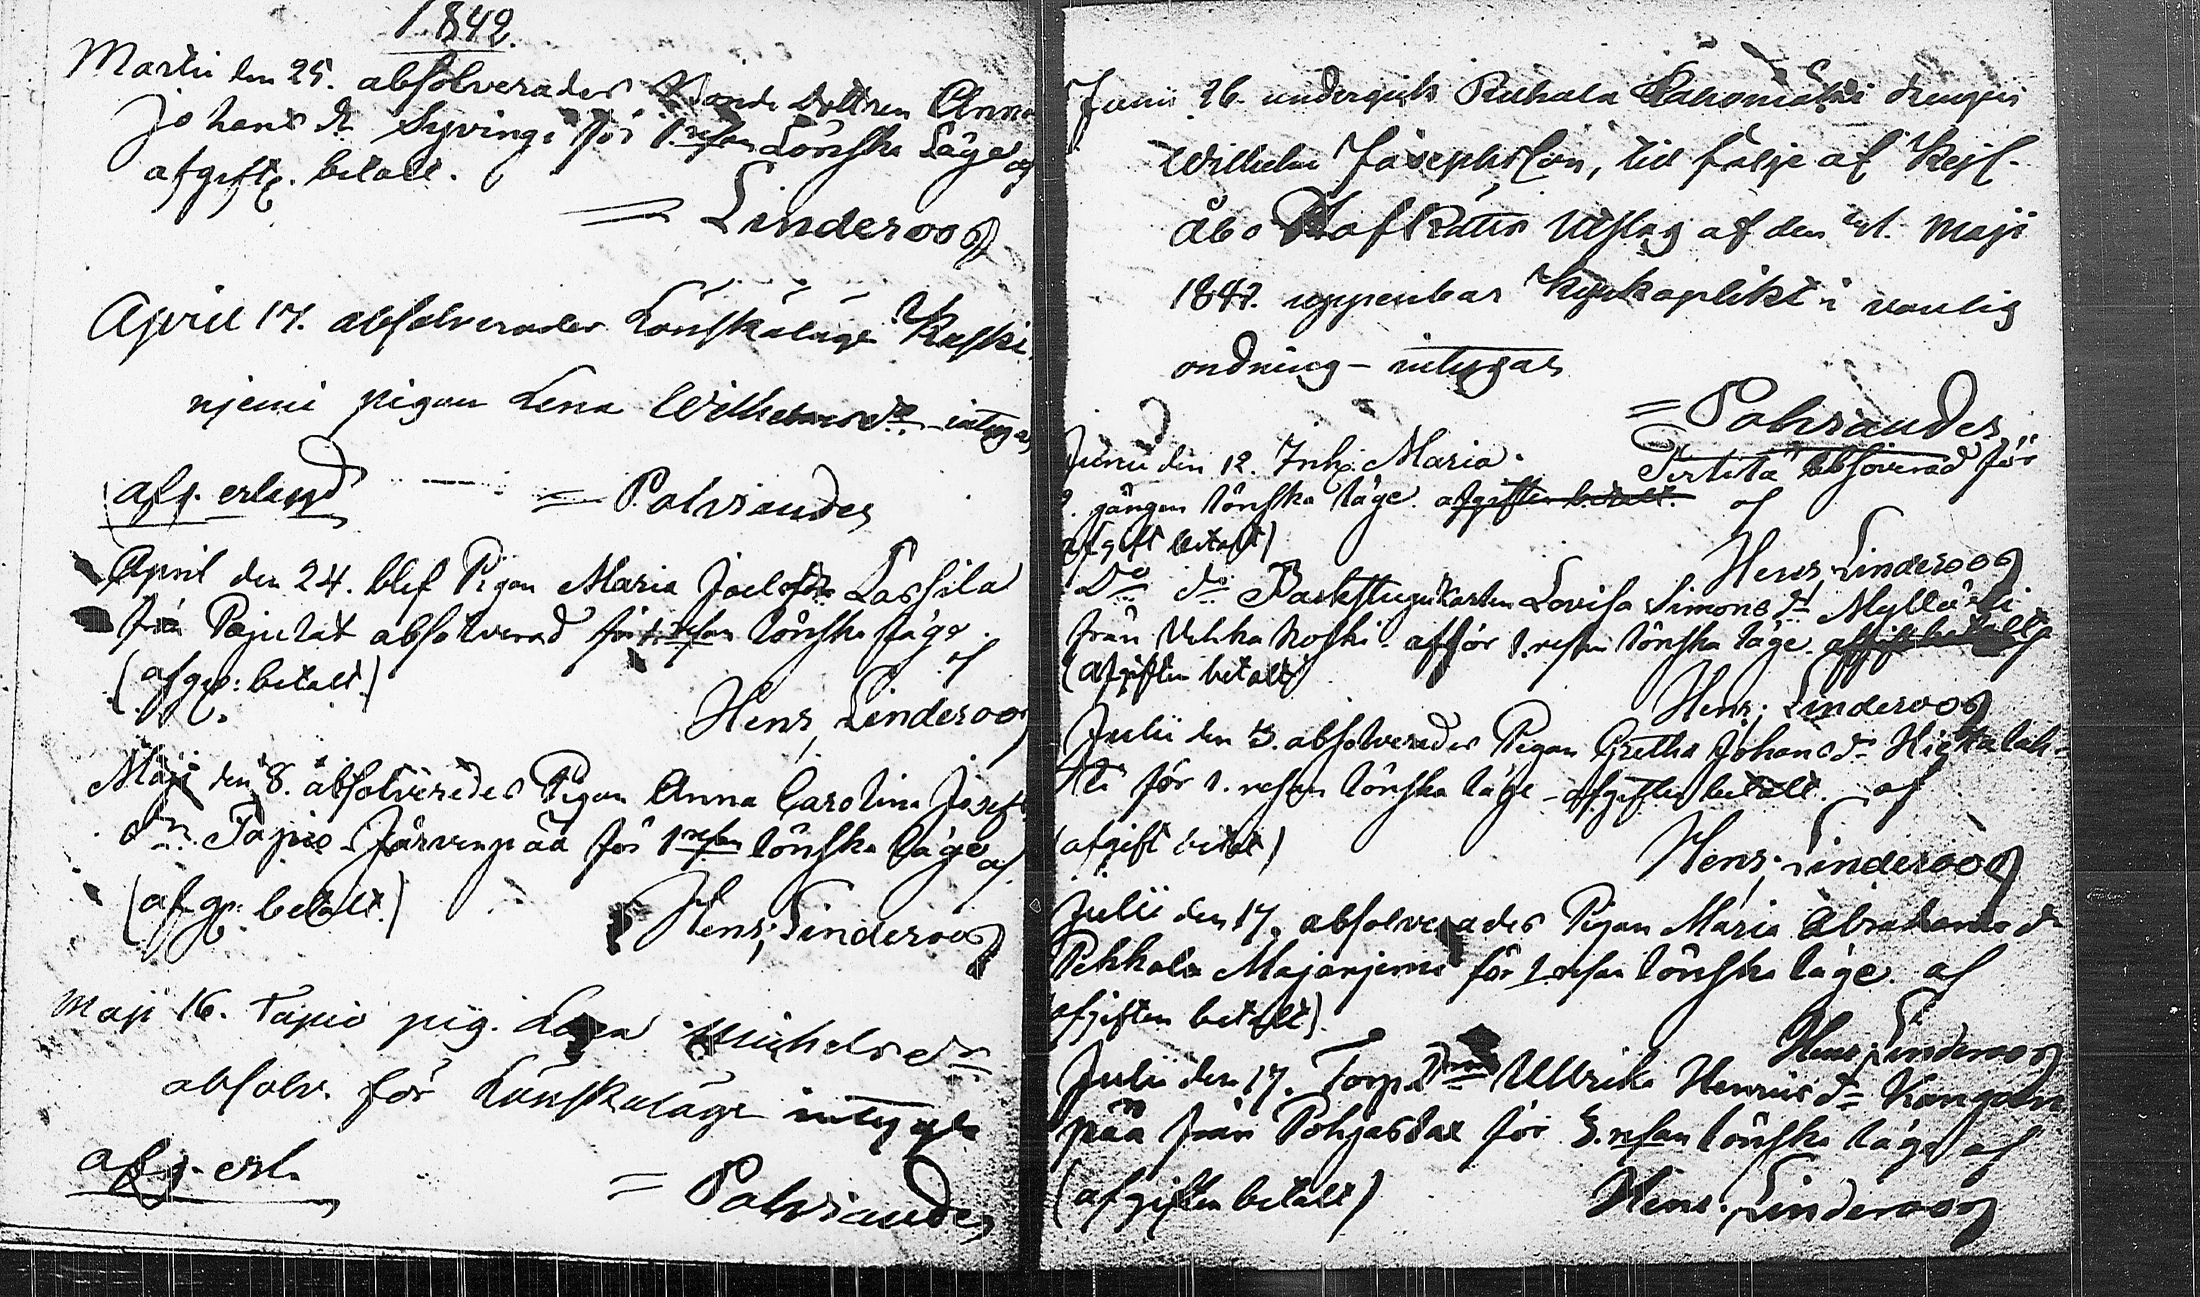 1842.
Martii den 25. absolverades Bonde dottren Anna
Johans dr Syvinge för 1 resan Lönska Läge af
afgift. betalt.
= Linderoos
April 17. absolverades Lönskaläge Kaski
njemi pigan Lena Wilhelmsdr. intygas
afg. erlagd = Palviander
April den 24. blef Pigan Maria Joelsdr Lassila
från Pajulax absolverad för 1. resan lönska läge.
af
(afg: betalt.)
Henr. Linderoos
Maji den 8. absolverades Pigan Anna Carolina Josefs
dr. Tapio Järvenpää för 1 resan lönska läge af
(afg: betalt.)
Henr. Linderoos
Maji 16. Tapio pig. Lena Michelsdr
absolv. för Lönskaläge intygas
afg. erl.
= Palviander
Junii 26. undergick Ruhala drengen
Wilhelm Josephsson, till följe af Kejs.
Åbo HofRätts Utslag af den 21. Maji
1842. uppenbar Kyrkoplikt i vanlig
ordning – intygas
= Palviander
Junii den 12. Inh. Maria Pertitä absolverad för
2. gången lönska läge. afgiften betalt. af
afgift betalt)
Henr. Linderoos
Do do Backstugukarlen Lovisa Simonsdr Mylläri
från Uckkakoski för 1. resan lönska läge. afgift betalt af
(afgiften betalt)
Henr. Linderoos
Julii den 3. absolverades Pigan Gretha Johansdr Hietalah-
ti för 1. resan lönska läge – afgiften betalt. af
(afgift betalt)
Henr. Linderoos
Julii den 17. absolverades Pigan Maria Abrahamsdr
Pekkala Majanjemi för 1. resan lönska läge. af
afgiften betalt).
Henr. Linderoos
Julii den 17. Torp. Ullrika Henricsdr Kangaan
pää från Pohjaslax för 3. resan lönska läge af
(afgiften betalt)
Henr. Linderoos